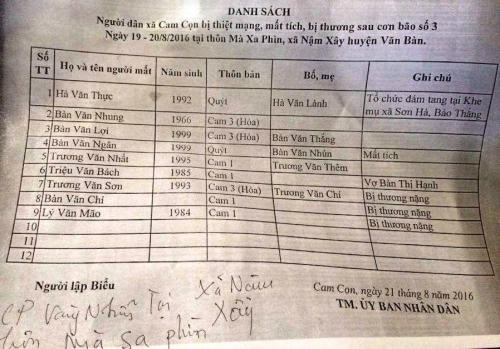 DANH SÁCH
Người dân xã Cam Cọn bị thiệt mạng, mất tích, bị thương sau cơn bão số 3
Ngày 19 - 20/8/2016 tại thôn Mà Xa Phìn, xã Nậm Xây huyện Văn Bàn.
Số TT Họ và tên người mất Năm sinh Thôn bản Bố, mẹ Ghi chú
1 Hà Văn Thực 1992 Quýt Hà Văn Lảnh Tổ chức đám tang tại Khe
mụ xã Sơn Hà, Bảo Thắng
2 Bàn Văn Nhung 1966 Cam 3 (Hòa)
3 Bàn Văn Lợi 1999 Cam 3 (Hòa) Bàn Văn Thắng
4 Bàn Văn Ngân 1999 Quýt Bàn Văn Nhủn Mất tích
5 Trương Văn Nhất 1995 Cam 1 Trương Văn Thêm
6 Triệu Văn Bách 1985 Cam 1 Vợ Bàn Thị Hạnh
7 Trương Văn Sơn 1993 Cam 3 (Hòa) Trương Văn Chỉ Bị thương nặng
8 Bàn Văn Chỉ Cam 1 Bị thương nặng
9 Lý Văn Mão 1984 Cam 1 Bị thương nặng
10
11
12
Người lập Biểu
Cam Con, ngày 21 tháng 8 năm 2016
TM. ỦY BAN NHÂN DÂN
CP Tại Xã Nậm Xây
Mà Sa phìn